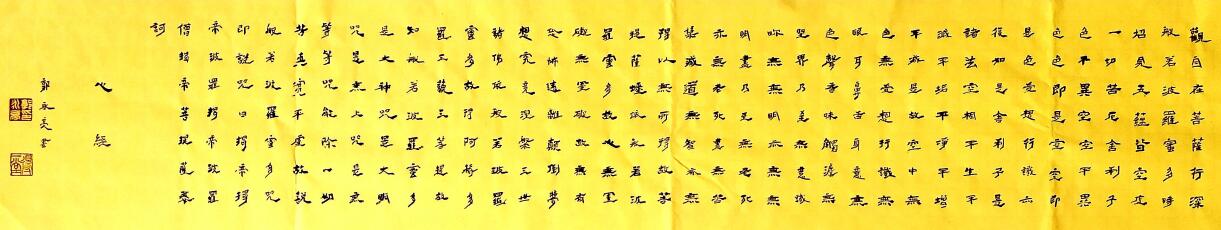 觀自在菩薩行深
般若波羅蜜多時
照見五蘊皆空度
一切苦厄舍利子
色不異空空不異
色色即是空空即
是色受想行識亦
復如是舍利子是
諸法空相不生不
滅不垢不淨不增
不減是故空中無
色無受想行識無
眼耳鼻舌身意無
色聲香味觸法無
眼界乃至無意識
界無無明亦無無
明盡乃至無老死
亦無老死盡無苦
集滅道無智亦無
得以無所得故菩
提薩埵依般若波
羅蜜多故心無罣
礙無罣礙故無有
恐怖遠離顛倒夢
想究竟涅槃三世
諸佛依般若波羅
蜜多故得阿耨多
羅三藐三菩提故
知般若波羅蜜多
是大神咒是大明
咒是無上咒是無
等等咒能除一切
苦真實不虛故說
般若波羅蜜多咒
即說咒曰揭帝揭
帝波羅揭帝波羅
僧揭帝菩提薩婆
訶
心經
郭永亮書